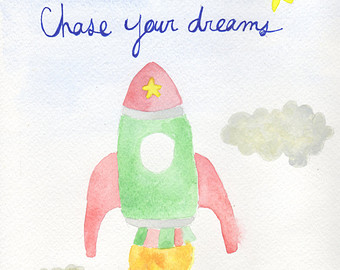 Chase your dreams